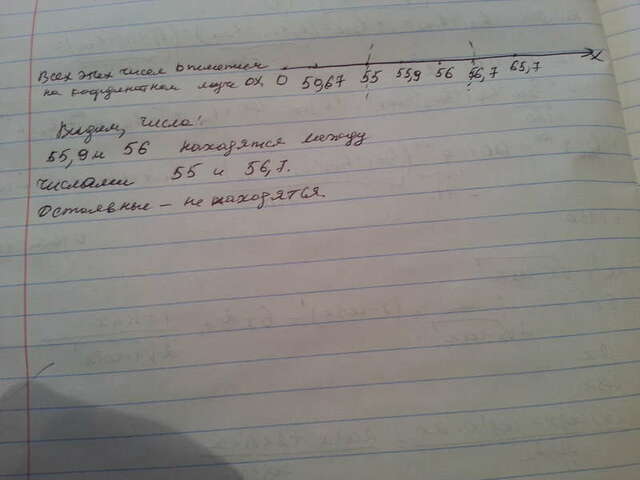 Всех этих чисел отметим
на координатном луче OX. 0 5,67 55 55,9 56 56,7 65,7 X
Видим, числа:
55,9 и 56 находятся между
числами 55 и 56,7.
Остальные – не находятся.